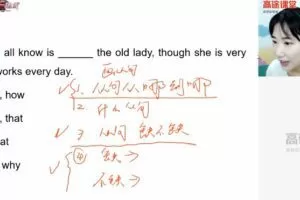 高途课堂
all know is ______ the old lady, though she is very
works every day.
画从句
, how
1. 从句从哪到哪
2. 什么从句
, that
3. 从句 缺不缺
at
④ 缺→
why
不缺→